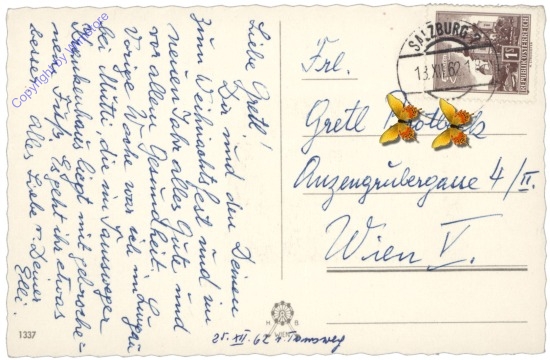 Liebe Gretl!
Dir und den Deinen
zum Weihnachtsfest und im
neuen Jahr alles Gute und
vor allem Gesundheit.
Vorige Woche war ich
bei Mutti, die im Tamsweger
Krankenhaus liegt mit gebroche=
nem Fuß. Es geht ihr etwas
besser. Alles Liebe v. Deiner
Elli.
SALZBURG 2
13.XII.62
REPUBLIK ÖSTERREICH
Frl.
Gretl
Anzengrubergasse 4/II.
Wien V.
1337
H B
WIEN
25. XII. 62 Tamsweg
Copyright by